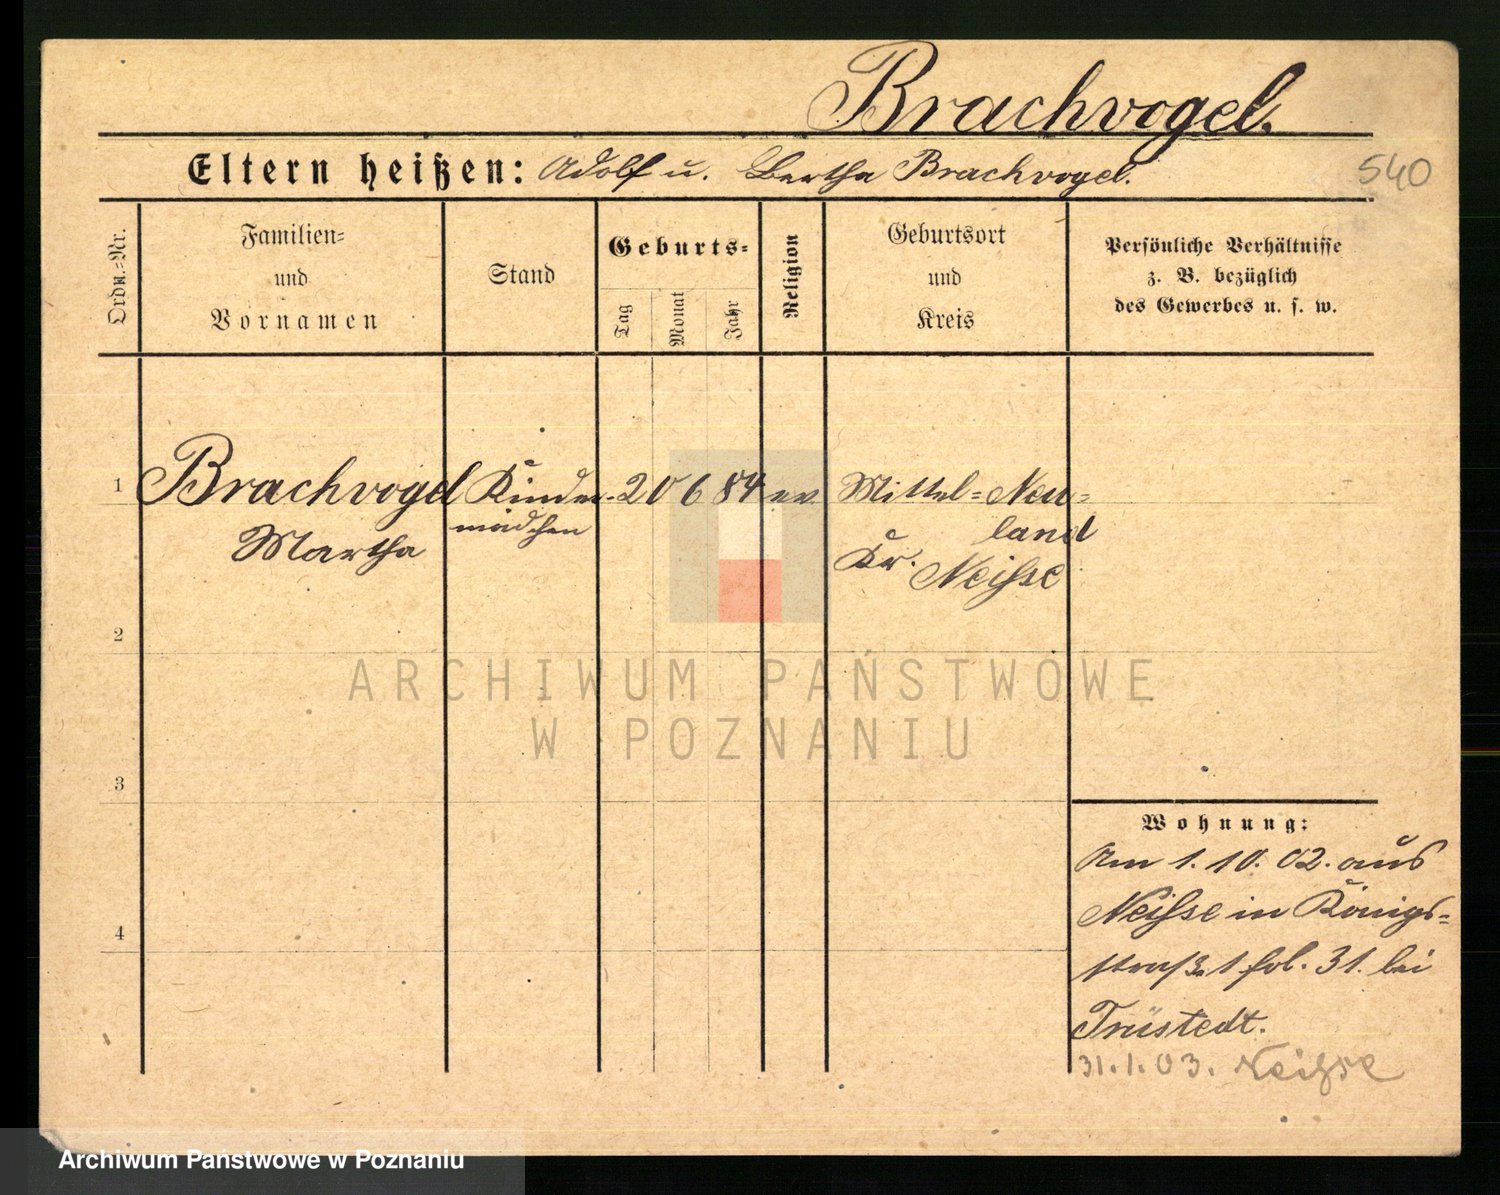 Brachvogel.
Eltern heißen: Adolf u. Bertha Brachvogel.
540
Ordn.-Nr.
Familien-
und
Vornamen
Stand
Geburts-
Tag
Monat
Jahr
Religion
Geburtsort
und
Kreis
Persönliche Verhältnisse
z. B. bezüglich
des Gewerbes u. s. w.
1 Brachvogel Kinder- 20 6 84 ev Mittel-Neu-
Martha mädchen land
Kr. Neisse
2
ARCHIWUM PAŃSTWOWE
W POZNANIU
3
Wohnung:
Am 1. 10. 02. aus
Neisse in Königs-
straße 1 fol. 31. bei
4
Trüstedt.
31.1.03. Neisse
Archiwum Państwowe w Poznaniu